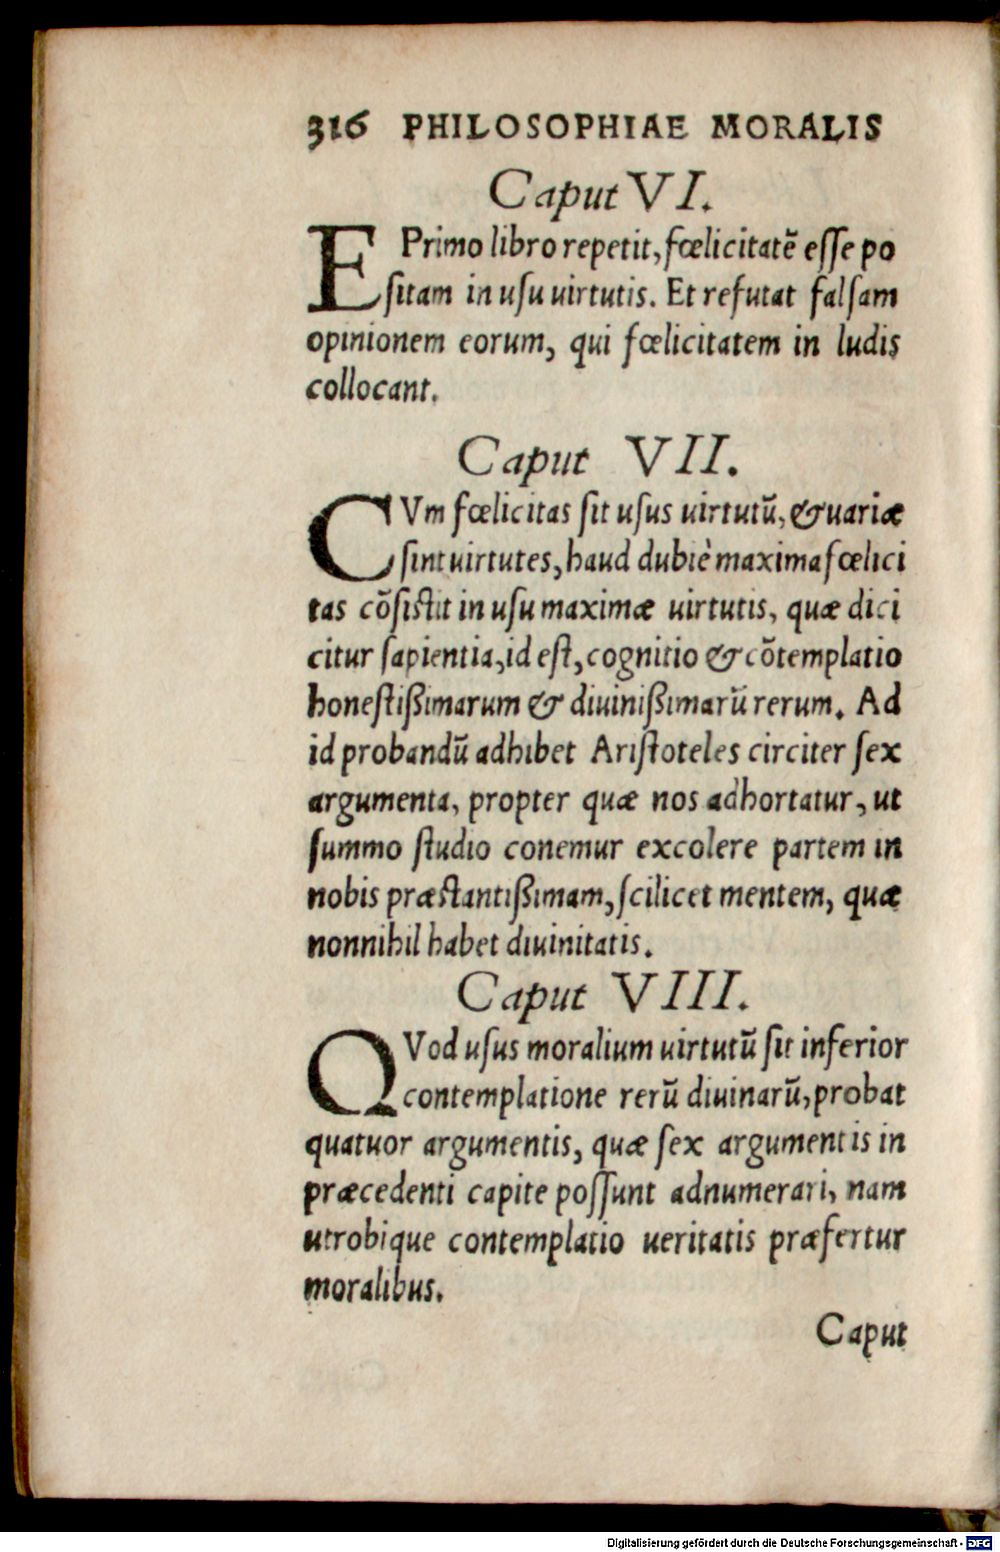 316 PHILOSOPHIAE MORALIS
Caput VI.
E Primo libro repetit, fœlicitatē esse po
sitam in usu uirtutis. Et refutat falsam
opinionem eorum, qui fœlicitatem in ludis
collocant.
Caput VII.
CVm fœlicitas sit usus uirtutū, & uariæ
sint uirtutes, haud dubiè maxima fœlici
tas cōsistit in usu maximæ uirtutis, quæ dici
citur sapientia, id est, cognitio & cōtemplatio
honestißimarum & diuinißimarū rerum. Ad
id probandū adhibet Aristoteles circiter sex
argumenta, propter quæ nos adhortatur, ut
summo studio conemur excolere partem in
nobis præstantißimam, scilicet mentem, quæ
nonnihil habet diuinitatis.
Caput VIII.
QVod usus moralium uirtutū sit inferior
contemplatione rerū diuinarū, probat
quatuor argumentis, quæ sex argumentis in
præcedenti capite possunt adnumerari, nam
utrobique contemplatio ueritatis præfertur
moralibus.
Caput
Digitalisierung gefördert durch die Deutsche Forschungsgemeinschaft - DFG